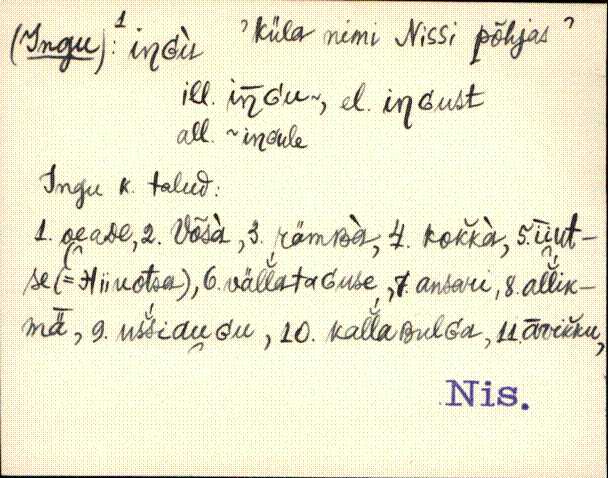 (Ingu):¹ iŋɢù ’küla nimi Nissi põhjas’
ill. iŋ̄ɢu~, el. iŋɢust
all. ~iŋɢule
Ingu k. talud:
1. oeade, 2. Võsà, 3. rämʙà, 4. kok̆kà, 5. īi̯ut-
se (= Hiiuotsa), 6. väl̆lataɢuse, 7. ansari, 8. al̆lik-
mǟ, 9. us̆siau̯ɢu, 10. kal̆laʙulɢa, 11. āvik̆ku,
Nis.